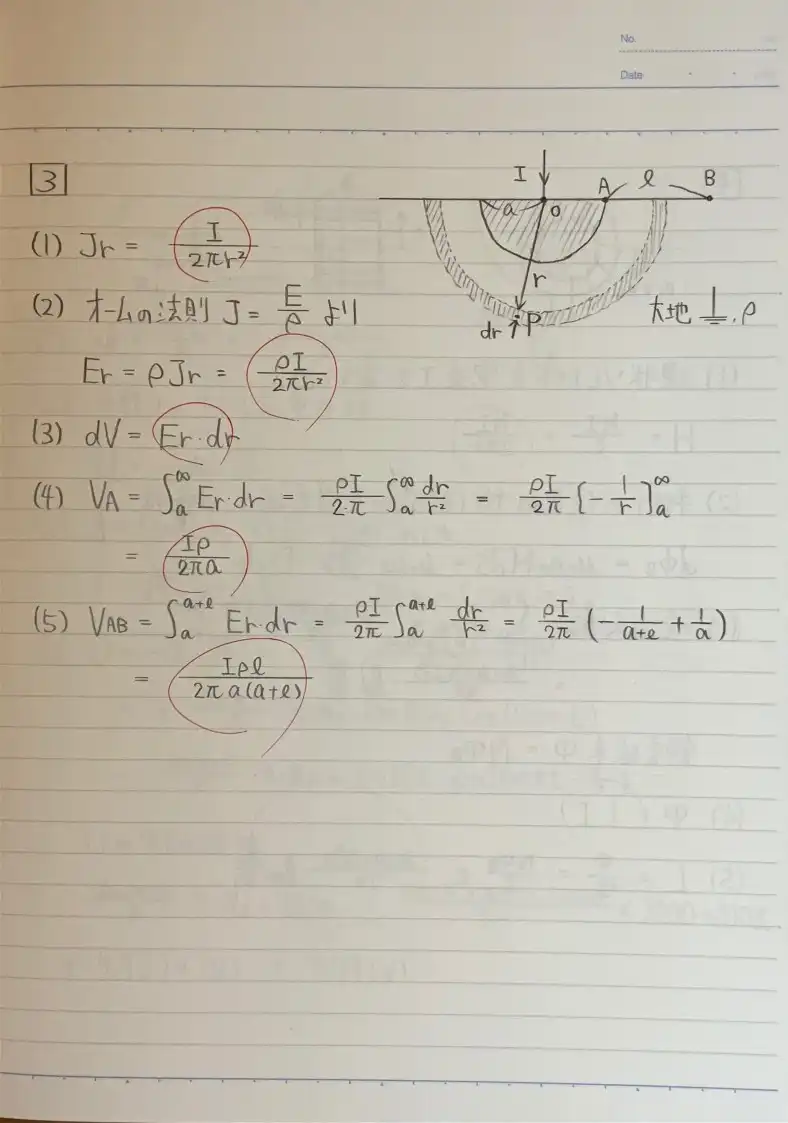 No.
Date
3
I
A
l
B
a
O
r
dr
P
大地 ρ
(1) Jr = I/2πr²
(2) オームの法則 J = E/ρ より
Er = ρJr = ρI/2πr²
(3) dV = Er·dr
(4) VA = ∫a^∞ Er·dr = ρI/2·π ∫a^∞ dr/r² = ρI/2π [-1/r]a^∞
= Iρ/2πa
(5) VAB = ∫a^a+l Er·dr = ρI/2π ∫a^a+l dr/r² = ρI/2π (-1/a+l + 1/a)
= Iρl/2πa(a+l)